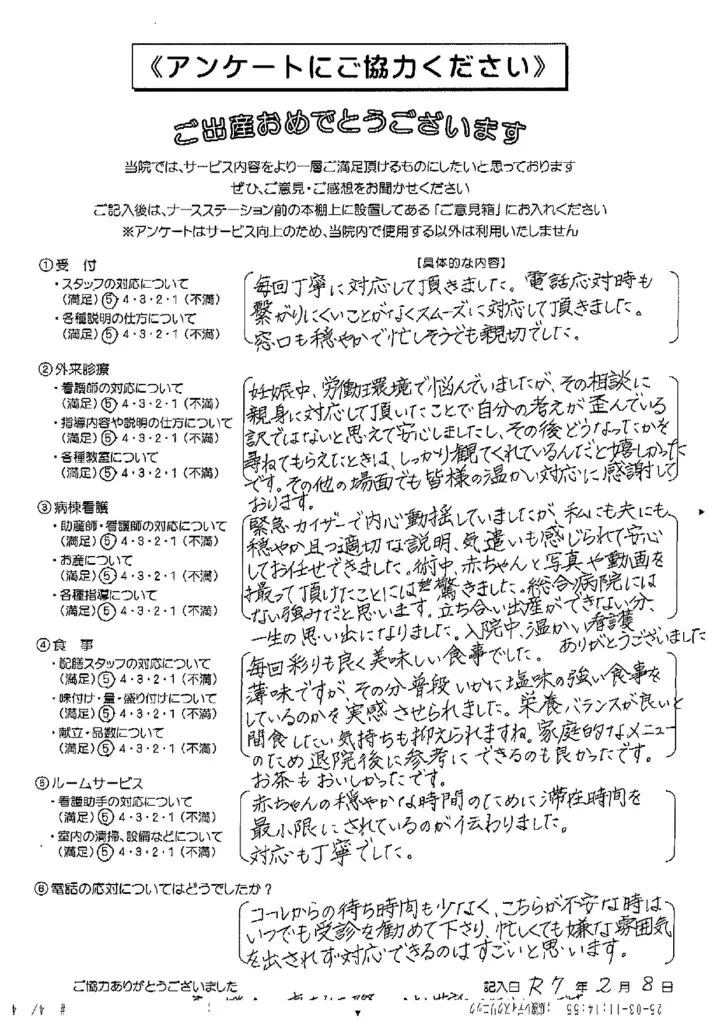 《アンケートにご協力ください》
ご出産おめでとうございます
当院では、サービス内容をより一層ご満足頂けるものにしたいと思っております
ぜひ、ご意見・ご感想をお聞かせください
ご記入後は、ナースステーション前の本棚上に設置してある「ご意見箱」にお入れください
※アンケートはサービス向上のため、当院内で使用する以外は利用いたしません
①受 付
【具体的な内容】
・スタッフの対応について
(満足)⑤4・3・2・1(不満)
・各種説明の仕方について
(満足)⑤4・3・2・1(不満)
毎回丁寧に対応して頂きました。電話応対時も
繋がりにくいことがなくスムーズに対応して頂きました。
窓口も穏やかで忙しそうでも親切でした。
②外来診療
・看護師の対応について
(満足)⑤4・3・2・1(不満)
・指導内容や説明の仕方について
(満足)⑤4・3・2・1(不満)
・各種教室について
(満足)⑤4・3・2・1(不満)
妊娠中、労働環境で悩んでいましたが、その相談に
親身に対応して頂いたことで自分の考えが歪んでいる
訳ではないと思えて安心しましたし、その後どうなったかを
尋ねてもらえたときは、しっかり観てくれているんだと嬉しかった
です。その他の場面でも皆様の温かい対応に感謝して
おります。
③病棟看護
・助産師・看護師の対応について
(満足)⑤4・3・2・1(不満)
・お産について
(満足)⑤4・3・2・1(不満)
・各種指導について
(満足)⑤4・3・2・1(不満)
緊急カイザーで内心動揺していましたが、私にも夫にも
穏やか且つ適切な説明、気遣いも感じられて安心
してお任せできました。術中、赤ちゃんと写真や動画を
撮って頂けたことには驚きました。総合病院には
ない強みだと思います。立ち合い出産ができない分、
一生の思い出になりました。入院中、温かい看護
ありがとうございました
④食 事
・配膳スタッフの対応について
(満足)⑤4・3・2・1(不満)
・味付け・量・盛り付けについて
(満足)⑤4・3・2・1(不満)
・献立・品数について
(満足)⑤4・3・2・1(不満)
毎回彩りも良く美味しい食事でした。
薄味ですが、その分普段いかに塩味の強い食事を
しているのかを実感させられました。栄養バランスが良いと
間食したい気持ちも抑えられますね。家庭的なメニュー
のため退院後に参考にできるのも良かったです。
お茶もおいしかったです。
⑤ルームサービス
・看護助手の対応について
(満足)⑤4・3・2・1(不満)
・室内の清掃、設備などについて
(満足)⑤4・3・2・1(不満)
赤ちゃんの穏やかな時間のために滞在時間を
最小限にされているのが伝わりました。
対応も丁寧でした。
⑥電話の応対についてはどうでしたか?
コールからの待ち時間も少なく、こちらが不安な時は
いつでも受診を勧めて下さり、忙しくても嫌な雰囲気
を出されず対応できるのはすごいと思います。
ご協力ありがとうございました
記入日 R7 年 2 月 8 日
# 4/ 4
25-03-11;14:55